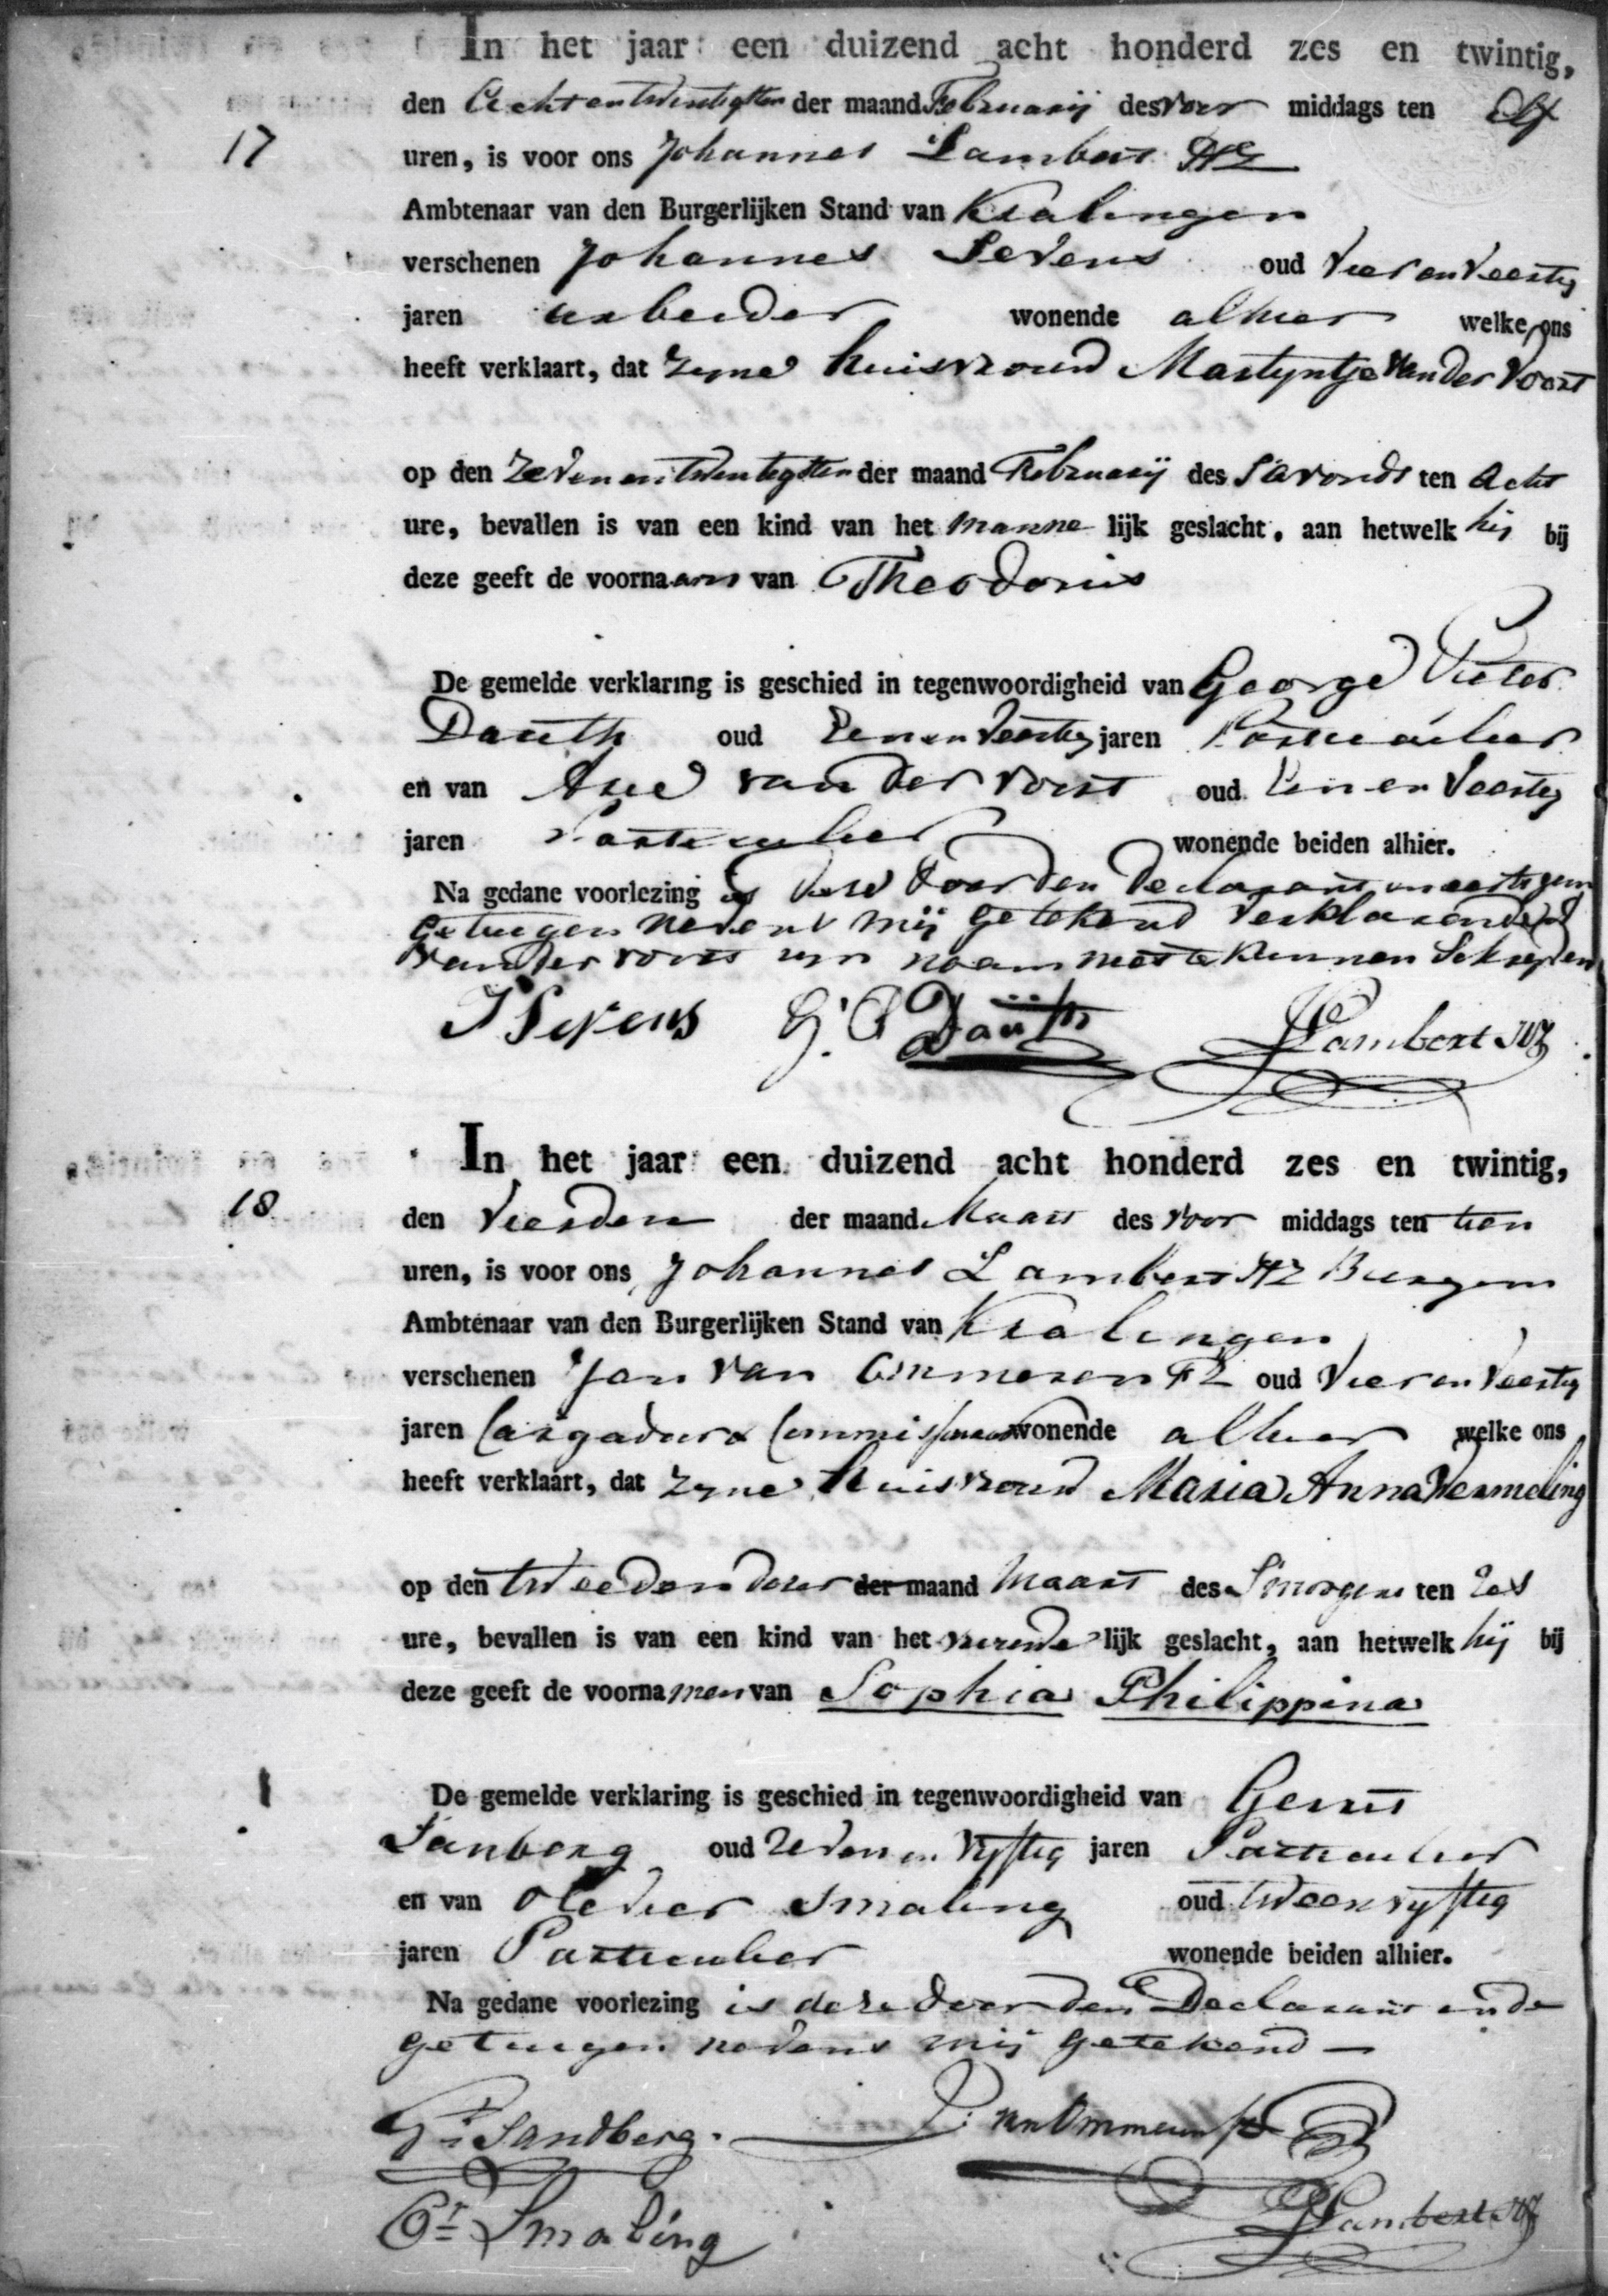 In het jaar een duizend acht honderd zes en twintig,
den Achtentwintigsten der maand February des voor middags ten Elf
17
uren, is voor ons Johannes Lambert
Ambtenaar van den Burgerlijken Stand van Kralingen
verschenen Johannes Sevens oud Vier en Veertig
jaren arbeider wonende alhier welke ons
heeft verklaart, dat zyne huisvrouw Martyntje van der Voort
op den Zeven en twentigsten der maand February des S'avonds ten Acht
ure, bevallen is van een kind van het manne lijk geslacht, aan hetwelk hij bij
deze geeft de voornaam van Theodorus
De gemelde verklaring is geschied in tegenwoordigheid van George Pieter
Dauth oud Een en Veertig jaren Particulier
en van Arie van der Voort oud Een en Veertig
jaren Particulier wonende beiden alhier.
Na gedane voorlezing is dese door den Declarant en eerstgem
getuigen nevens mij getekend verklarende
van der voort zyn naam niet te kunnen Schryven
J Sevens G. P. Dauth J Lambert HZ
In het jaar een duizend acht honderd zes en twintig,
18
den Vierden der maand Maart des voor middags ten tien
uren, is voor ons Johannes Lambert HZ Burgem
Ambtenaar van den Burgerlijken Stand van Kralingen
verschenen Jan van Ommeren FZ oud Vier en Veertig
jaren Cargadoor & Commissionair wonende alhier welke ons
heeft verklaart, dat zyne Huisvrouw Maria Anna Vermeling
op den tweeden dezer der maand Maart des Smorgens ten Zes
ure, bevallen is van een kind van het vrouwe lijk geslacht, aan hetwelk hij bij
deze geeft de voornamen van Sophia Philippina
De gemelde verklaring is geschied in tegenwoordigheid van Gerrit
Sanberg oud Zeven en Vyftig jaren Particulier
en van Olivier Smaling oud twee en vyftig
jaren Particulier wonende beiden alhier.
Na gedane voorlezing is deze door den Declarant en de
getuigen nevens mij getekend —
Gt Sandberg. J: van Ommeren fz
Or Smaling J Lambert HZ